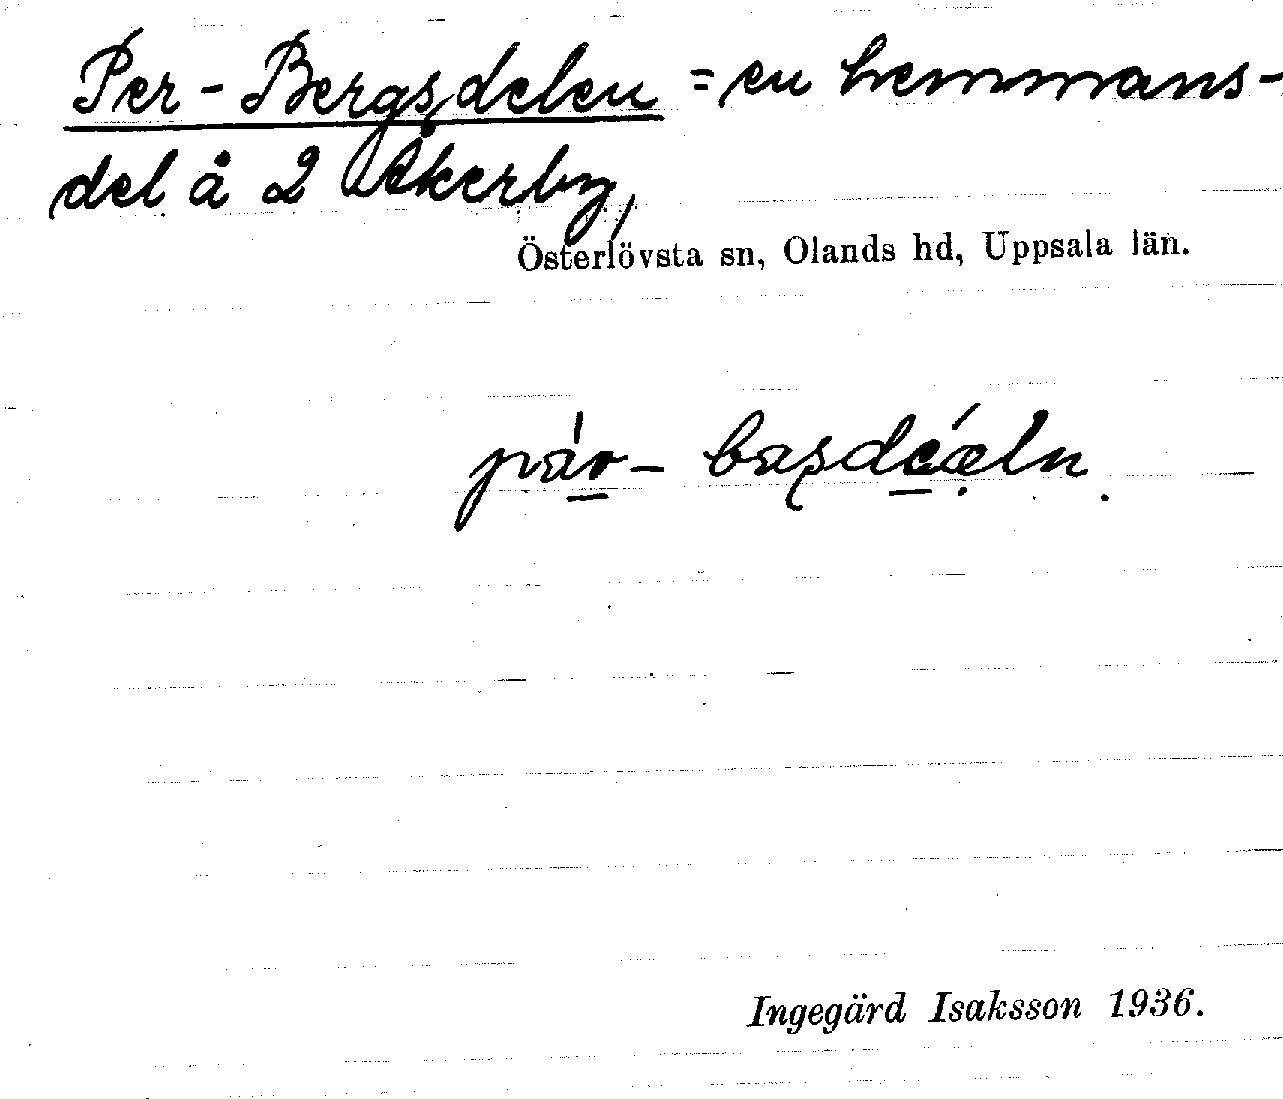 Per-Bergsdelen = en hemmans-
del å 2 Åkerby,
Österlövsta sn, Olands hd, Uppsala län.
Ingegärd Isaksson 1936.